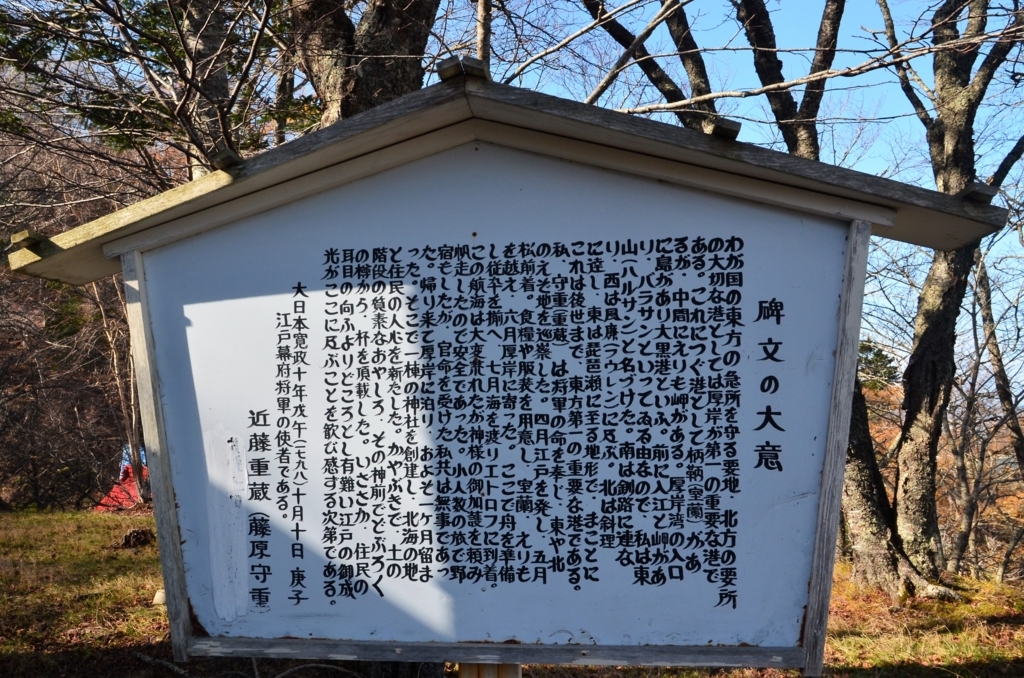 碑文の大意
わが国の東方の急所を守る要地 北方の要所
の大切な港としては厚岸が第一の重要な港で
ある。これにつぐ港として柄鞆(室蘭)があ
るが、中間にえりも岬がある。厚岸湾の入口
に島があり大黒島といふ。前に入江と岬があ
り、バラサンといってゐる由なので、私は東
山(ハルサン)と名づけた。南は釧路に連な
り 西は風廉ラウレンに及ぶ。北は斜理
に達し、東は琵琶瀬に至る地形で まことに
これは後世まで、東方第一の重要な港である。
私、守重重蔵は将軍の命を奉じ、東や北
のえぞ地を巡察した。四月江戸を発し 五月
松前着。食糧や服装を用意し、室蘭、えりも
を越え、六月厚岸に寄った。ここで舟を準備
し従卒を揃へ 七月海を渡りエトロフに到着。
この航海は大変荒れたが神様の御加護を頼み
帆走したので安全であった。小人数の旅で野
宿もしたが、官命を受けた私共は無事であっ
た。帰り来て厚岸に泊り、およそ一ヶ月留ま
った。そこで一棟の神社を創建し、北海の地
と住民の人心を新たした。かやぶきで 土の
階段の質素なおやしろ、その神前でどぶろく
の樽から、杯を頂載した。いささか、住民の
耳目の向ふよりどころとし有難い江戸の御威
光がここに及ぶことを歓び感する次第である。
大日本寛政十年戊午(一七九八)十月十日 庚子
江戸幕府将軍の使者である。
近藤重蔵(藤原守重